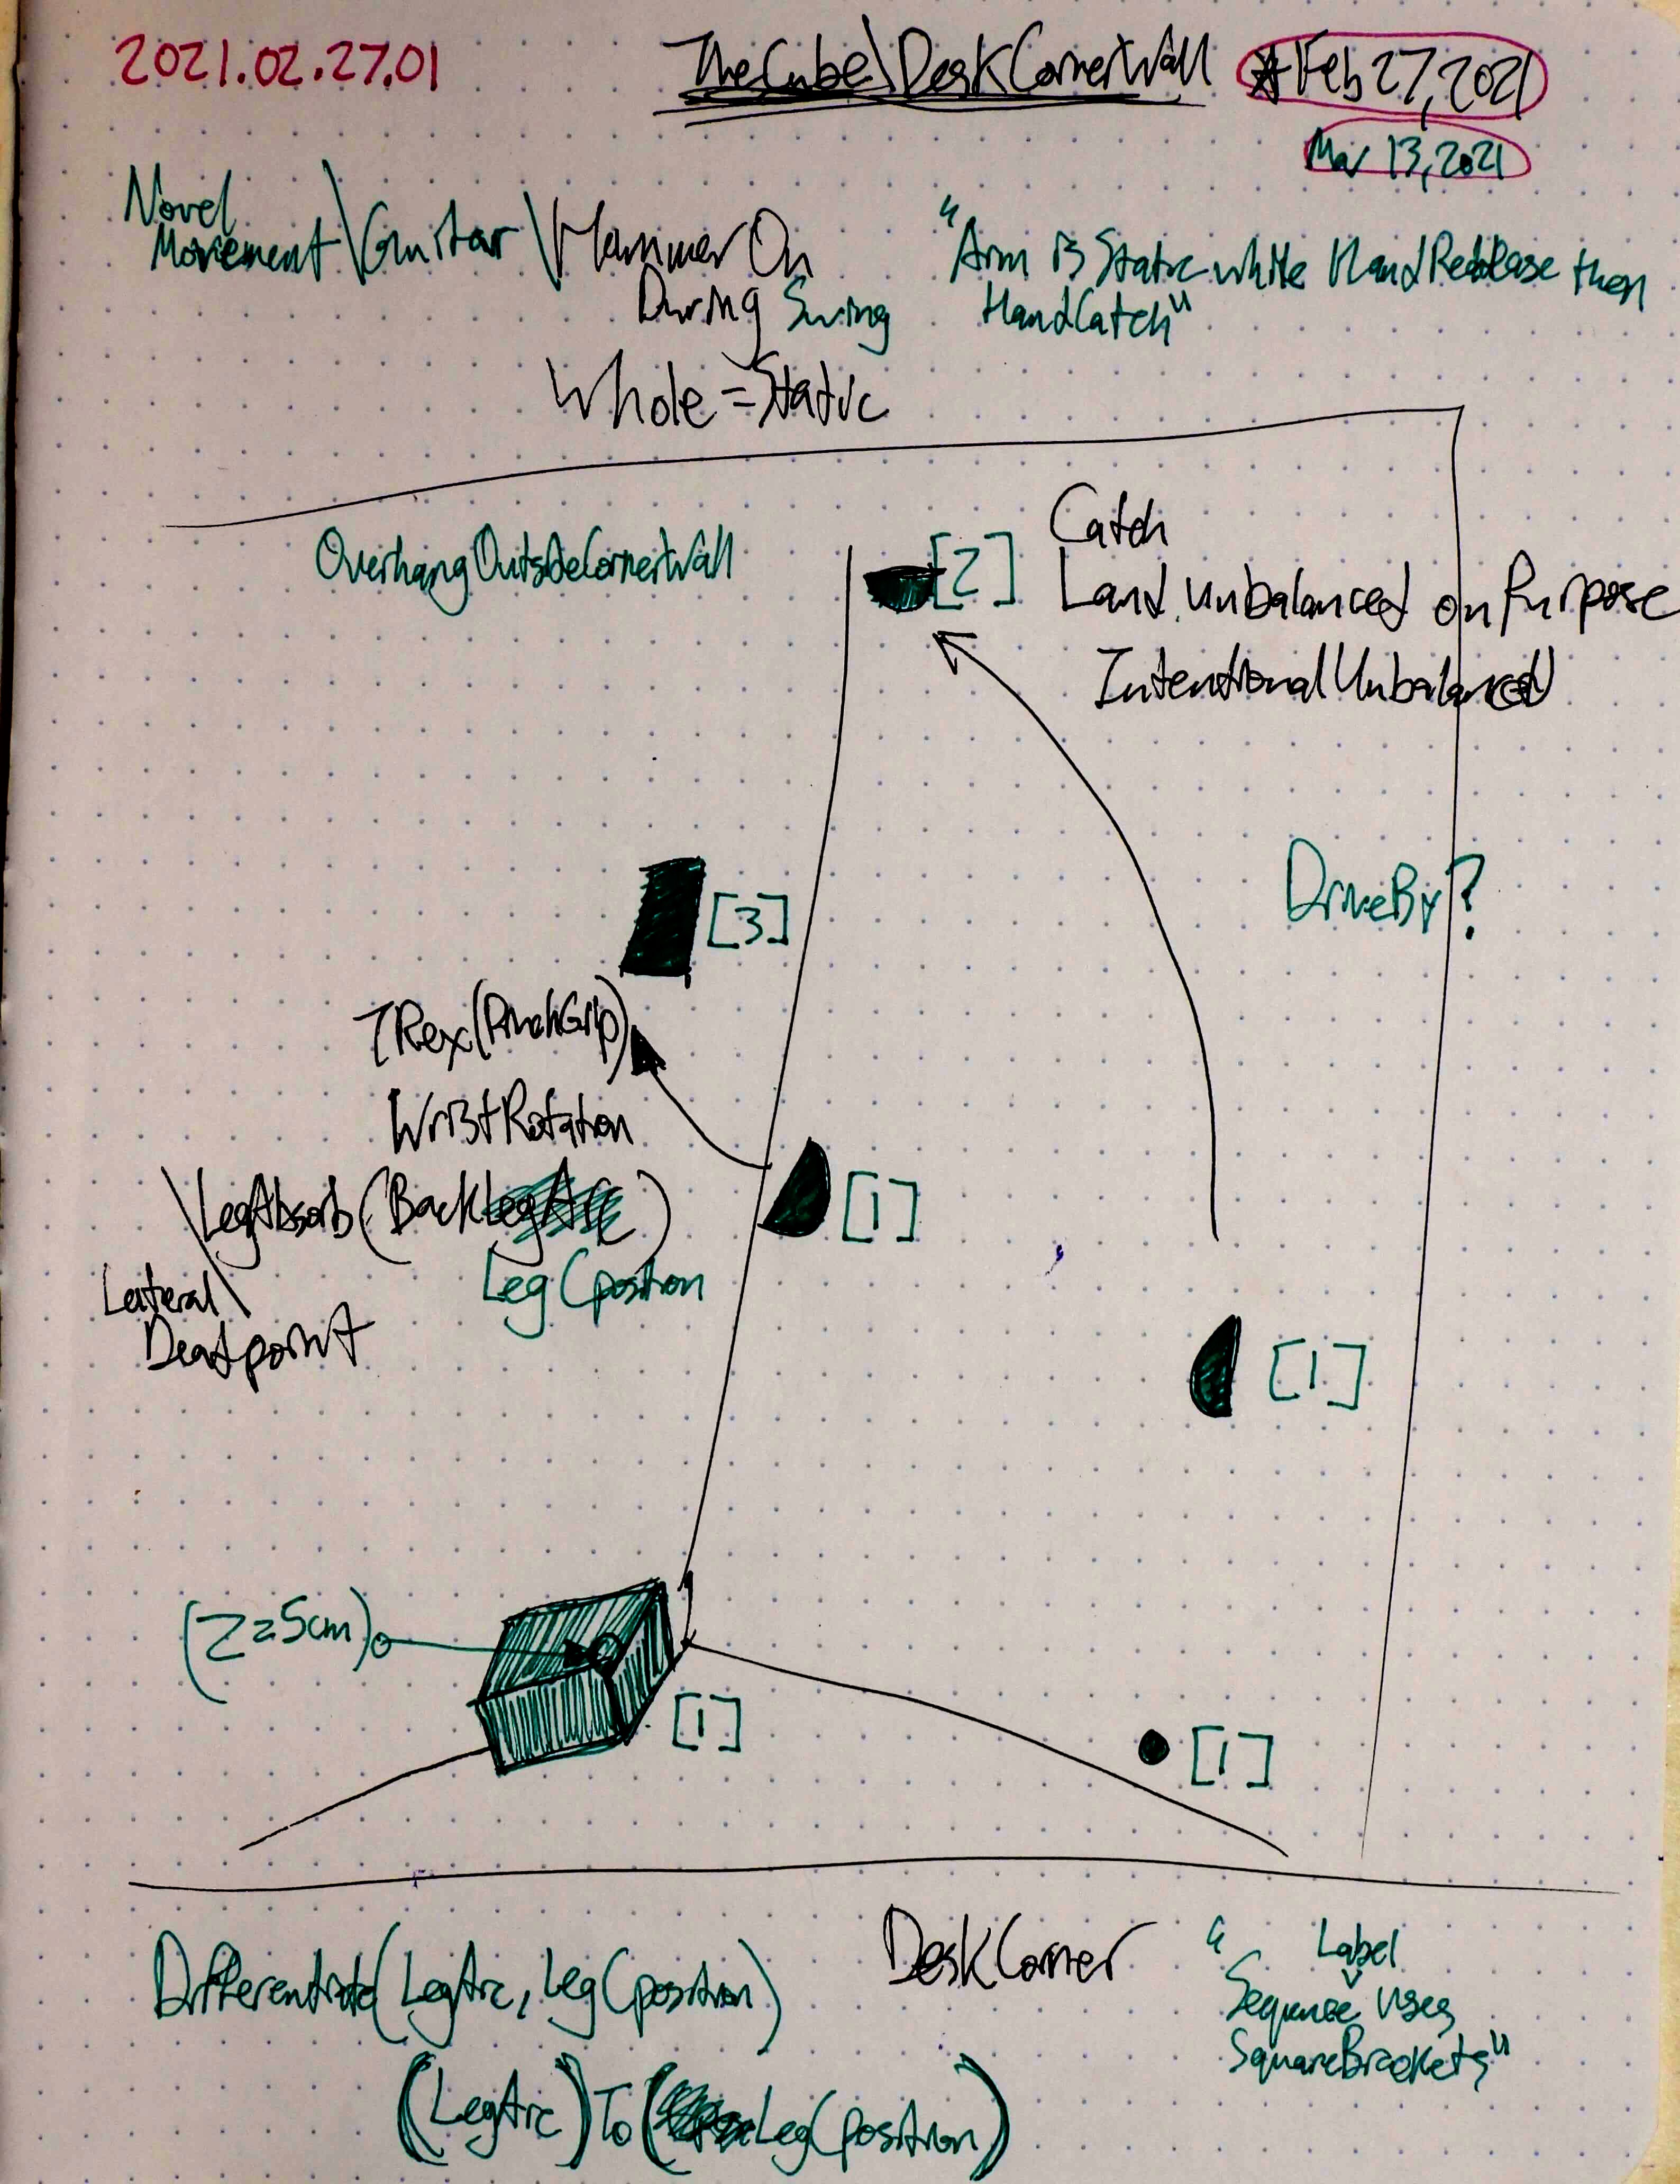 2021.02.27.01
TheCube\DeskCornerWall
*Feb 27, 2021
Mar 13, 2021
Novel
Movement\Guitar\HammerOn
During Swing
"Arm is Static while HandRelease then
HandCatch"
Whole = Static
OverhangOutsideCornerWall
[2]
Catch
Land unbalanced on Purpose
IntentionalUnbalanced
DriveBy?
[3]
TRex(PinchGrip)
WristRotation
\LegAbsorb(BackLegArc)
LegCposition
[1]
Lateral\
Deadpoint
[1]
(Z=5cm)
[1]
[1]
Differentiate(LegArc, LegCposition)
(LegArc)To(LegCposition)
DeskCorner
"Label
Sequence uses
SquareBrackets"